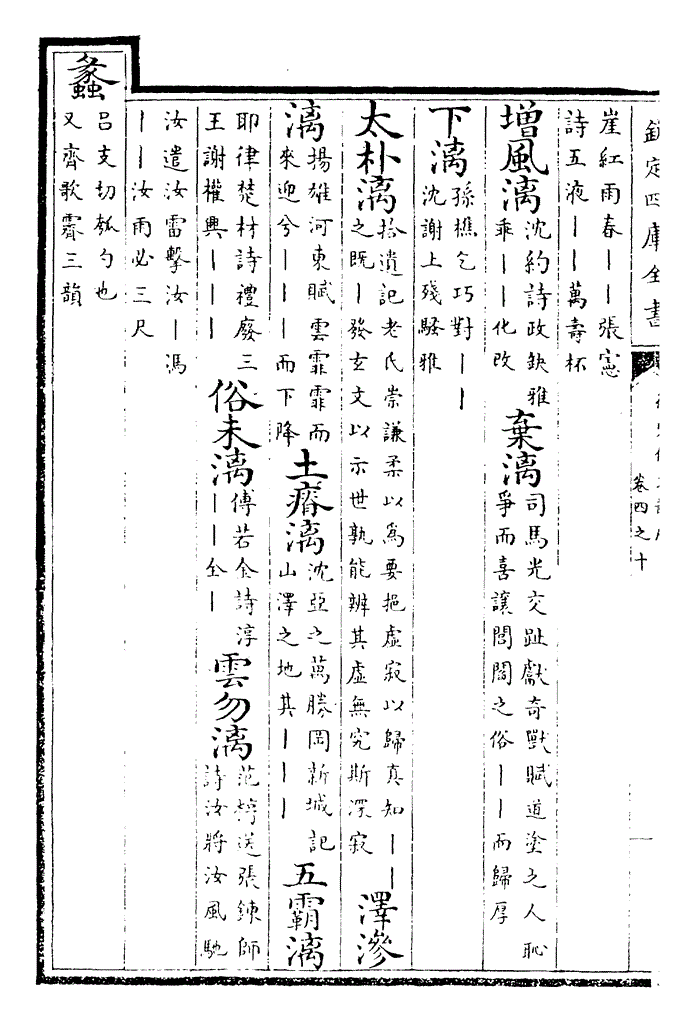 欽定四庫全書
卷四之十
崖紅雨春丨丨張憲
詩五液丨丨萬壽杯
增風漓
沈約詩政缺雅
乖丨丨化改
棄漓
司馬光交趾獻奇獸賦道塗之人恥
爭而喜讓閭閻之俗丨丨而歸厚
下漓
孫樵乞巧對丨丨
沈謝上殘騷雅
太朴漓
拾遺記老氏崇謙柔以為要挹虛寂以歸真知丨丨
之既丨發玄文以示世孰能辨其虛無究斯深寂
澤滲
漓
揚雄河東賦雲霏霏而
來迎兮丨丨丨而下降
土瘠漓
沈亞之萬勝岡新城記
山澤之地其丨丨丨
五霸漓
耶律楚材詩禮廢三
王謝權輿丨丨丨
俗未漓
傅若金詩淳
丨丨仝丨
雲勿漓
范梈送張鍊師
詩汝將汝風馳
汝遣汝雷擊汝丨馮
丨丨汝雨必三尺
蠡
呂支切瓠勺也
又齊歌霽三韻